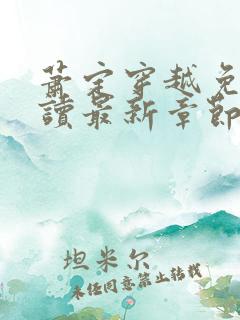 萧宗穿越免
读最新章节
坦米尔
未经同意禁止转载